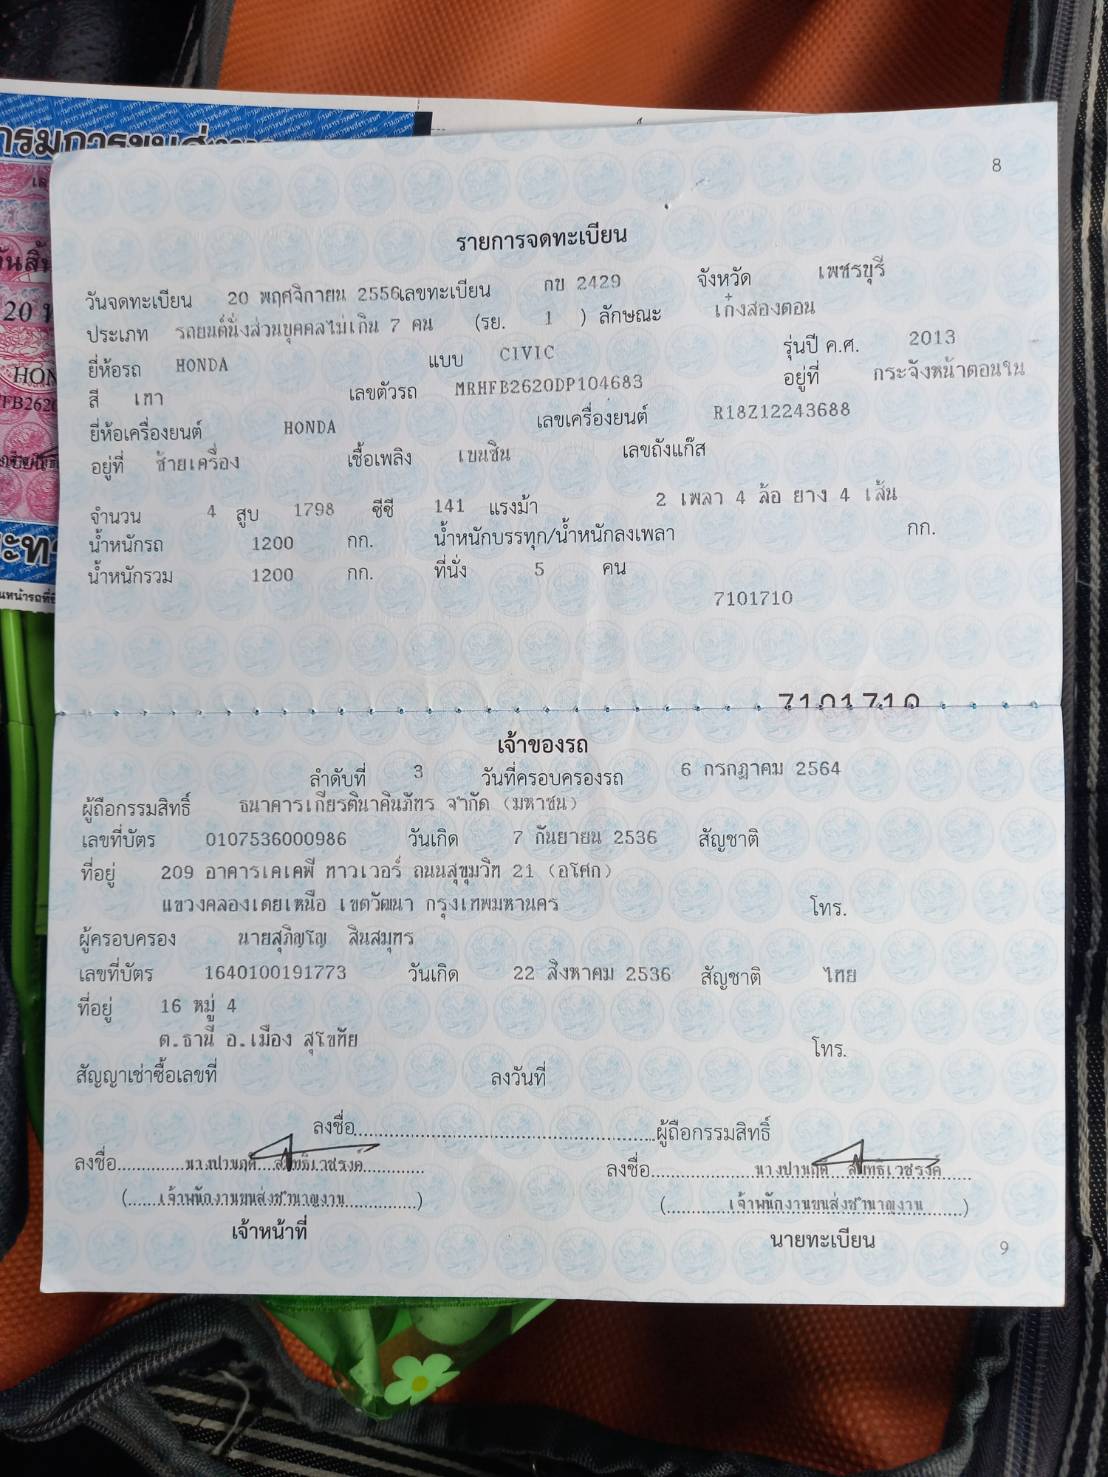 8
รายการจดทะเบียน
วันจดทะเบียน 20 พฤศจิกายน 2556 เลขทะเบียน กข 2429 จังหวัด เพชรบุรี
ประเภท รถยนต์นั่งส่วนบุคคลไม่เกิน 7 คน (รย. 1 ) ลักษณะ เก๋งสองตอน
ยี่ห้อรถ HONDA แบบ CIVIC รุ่นปี ค.ศ. 2013
สี เทา เลขตัวรถ MRHFB2620DP104683 อยู่ที่ กระจังหน้าตอนใน
ยี่ห้อเครื่องยนต์ HONDA เลขเครื่องยนต์ R18Z12243688
อยู่ที่ ซ้ายเครื่อง เชื้อเพลิง เบนซิน เลขถังแก๊ส
จำนวน 4 สูบ 1798 ซีซี 141 แรงม้า 2 เพลา 4 ล้อ ยาง 4 เส้น
น้ำหนักรถ 1200 กก. น้ำหนักบรรทุก/น้ำหนักลงเพลา กก.
น้ำหนักรวม 1200 กก. ที่นั่ง 5 คน
7101710
7101710
เจ้าของรถ
ลำดับที่ 3 วันที่ครอบครองรถ 6 กรกฎาคม 2564
ผู้ถือกรรมสิทธิ์ ธนาคารเกียรตินาคินภัทร จำกัด (มหาชน)
เลขที่บัตร 0107536000986 วันเกิด 7 กันยายน 2536 สัญชาติ
ที่อยู่ 209 อาคารเคเคพี ทาวเวอร์ ถนนสุขุมวิท 21 (อโศก)
แขวงคลองเตยเหนือ เขตวัฒนา กรุงเทพมหานคร โทร.
ผู้ครอบครอง นายสุภิญโญ สินสมุทร
เลขที่บัตร 1640100191773 วันเกิด 22 สิงหาคม 2536 สัญชาติ ไทย
ที่อยู่ 16 หมู่ 4
ต.ธานี อ.เมือง สุโขทัย โทร.
สัญญาเช่าซื้อเลขที่ ลงวันที่
ลงชื่อ ผู้ถือกรรมสิทธิ์
ลงชื่อ ลงชื่อ
(เจ้าพนักงานขนส่งชำนาญงาน) (เจ้าพนักงานขนส่งชำนาญงาน)
เจ้าหน้าที่ นายทะเบียน
9